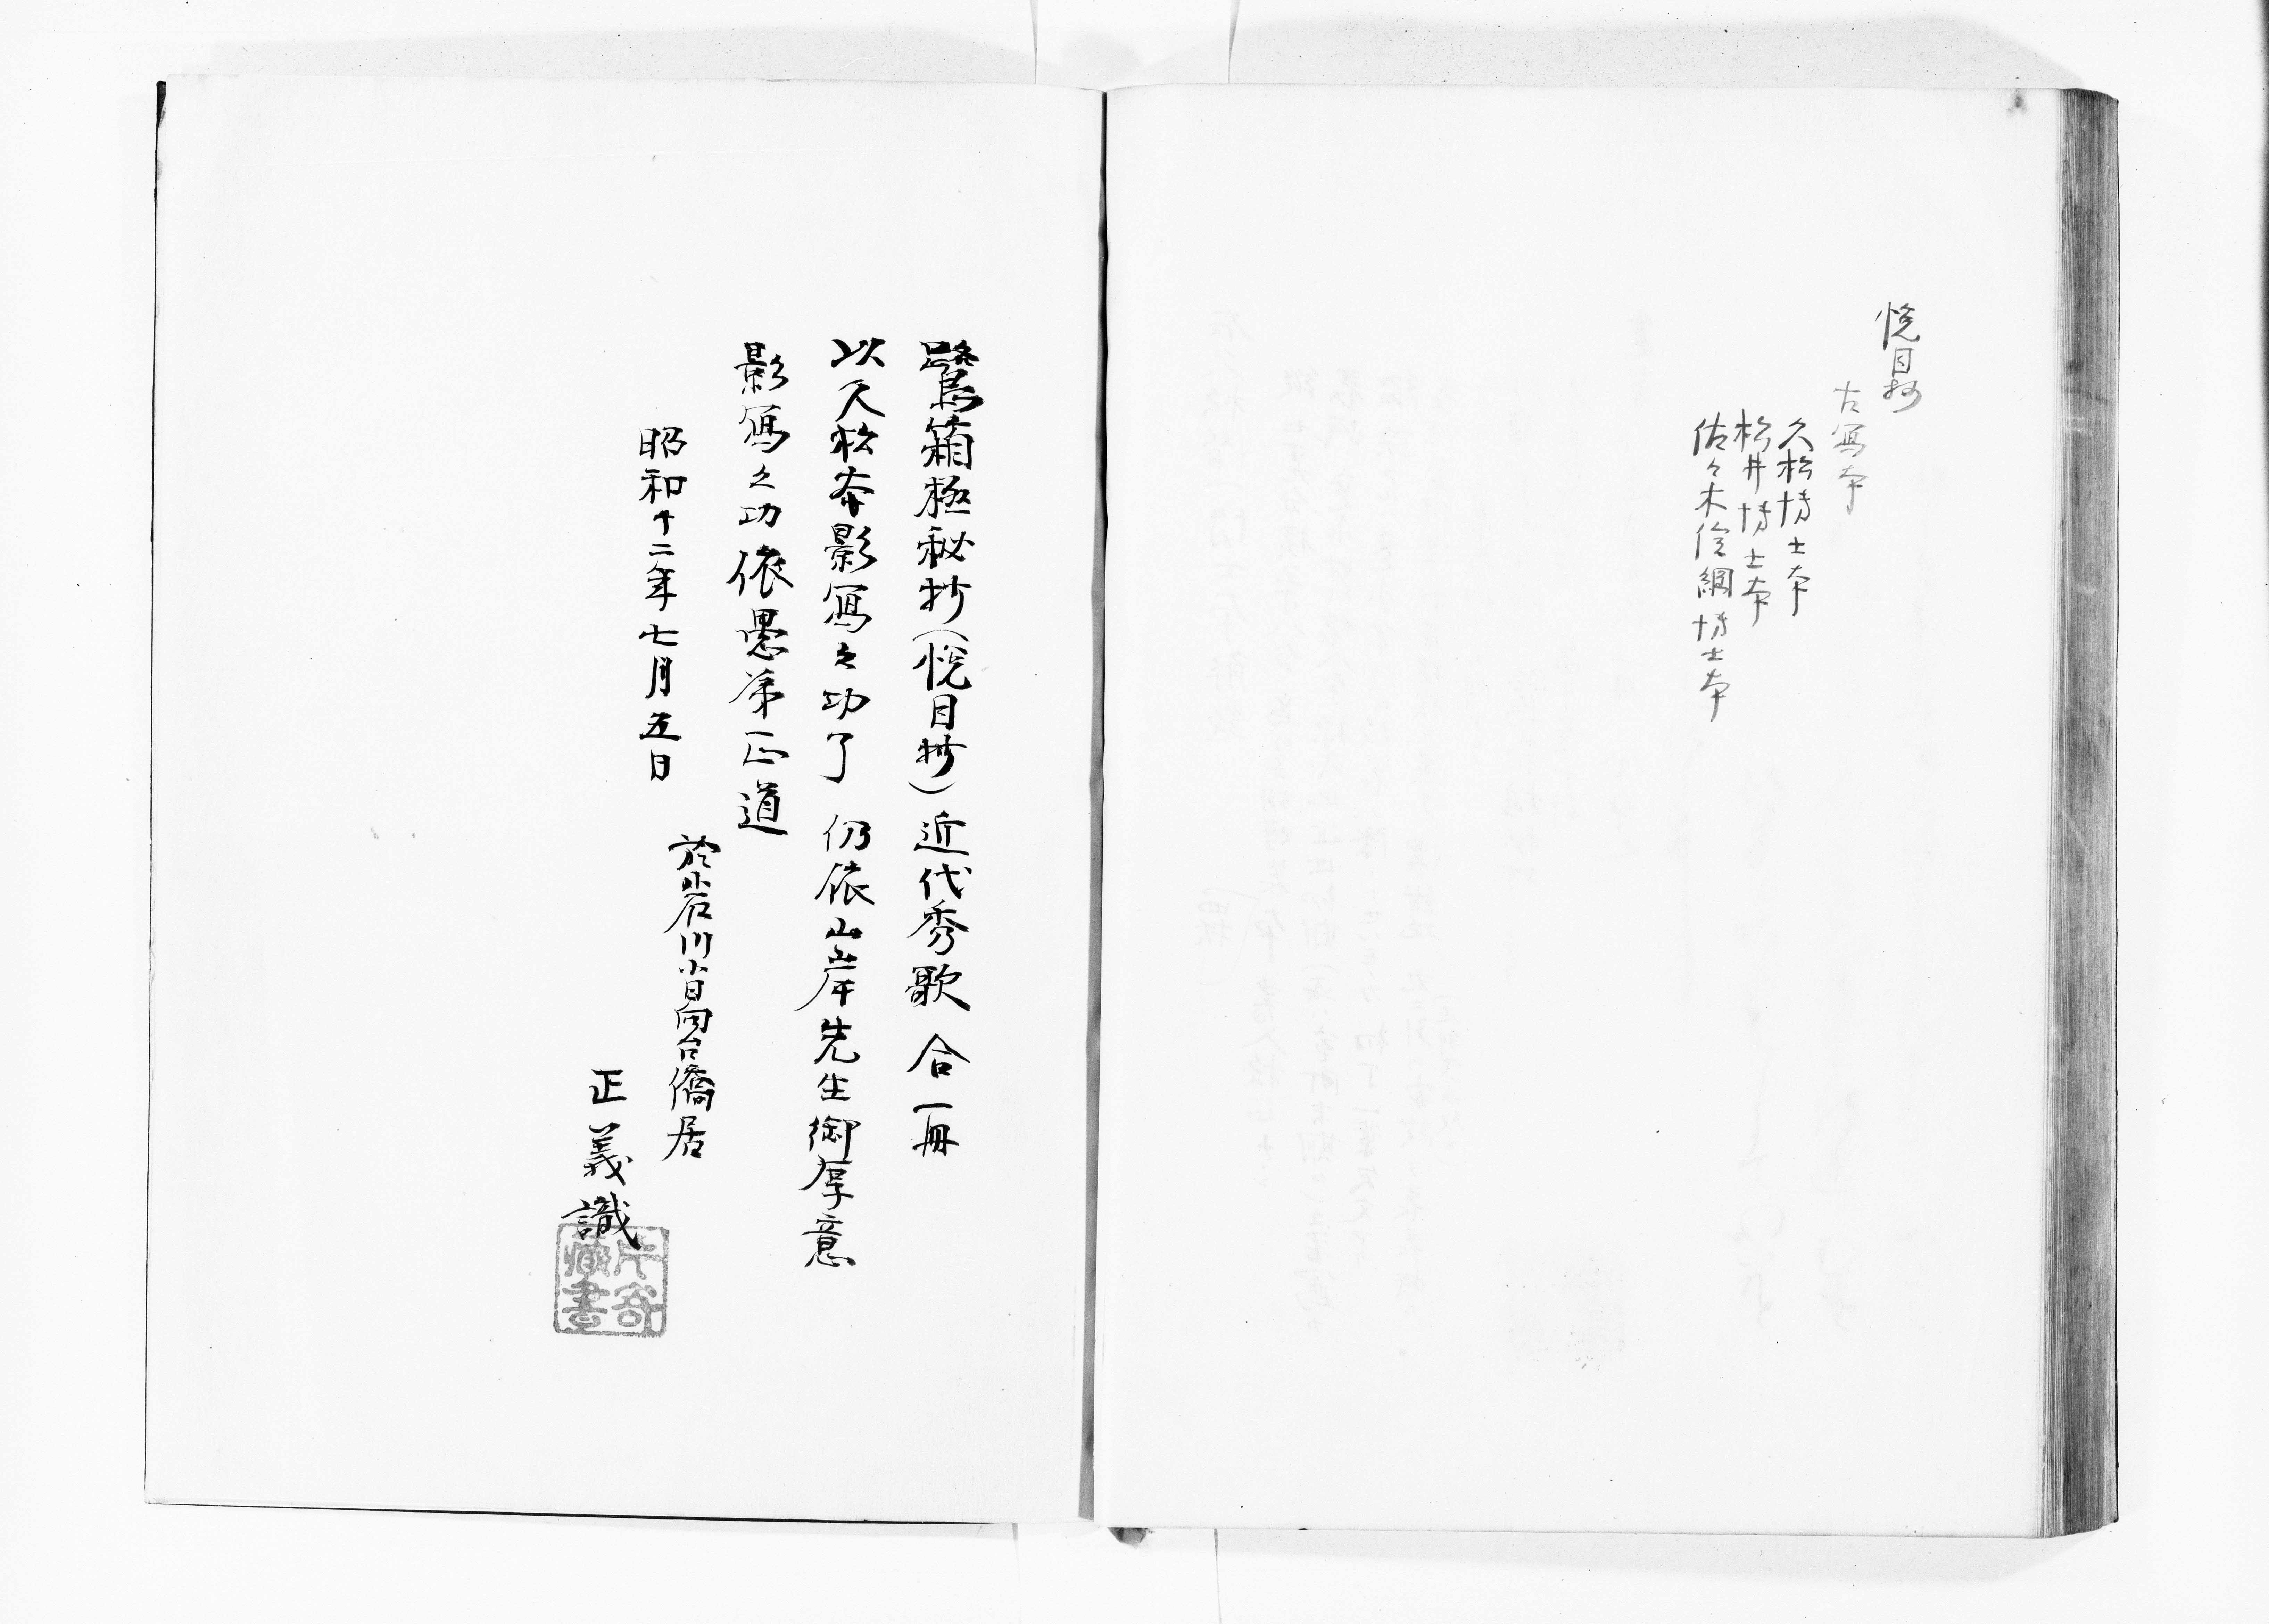 悦目抄
古写本
久松博士本
松井博士本
佐々木信綱博士本
鷺箱極秘抄(悦目抄)近代秀歌 合一冊
以久松本影寫之功了 仍依山岸先生御厚意
影寫之功依愚弟正道
昭和十二年七月五日
於小石川小日向台僑居
正義識
片寄藏書